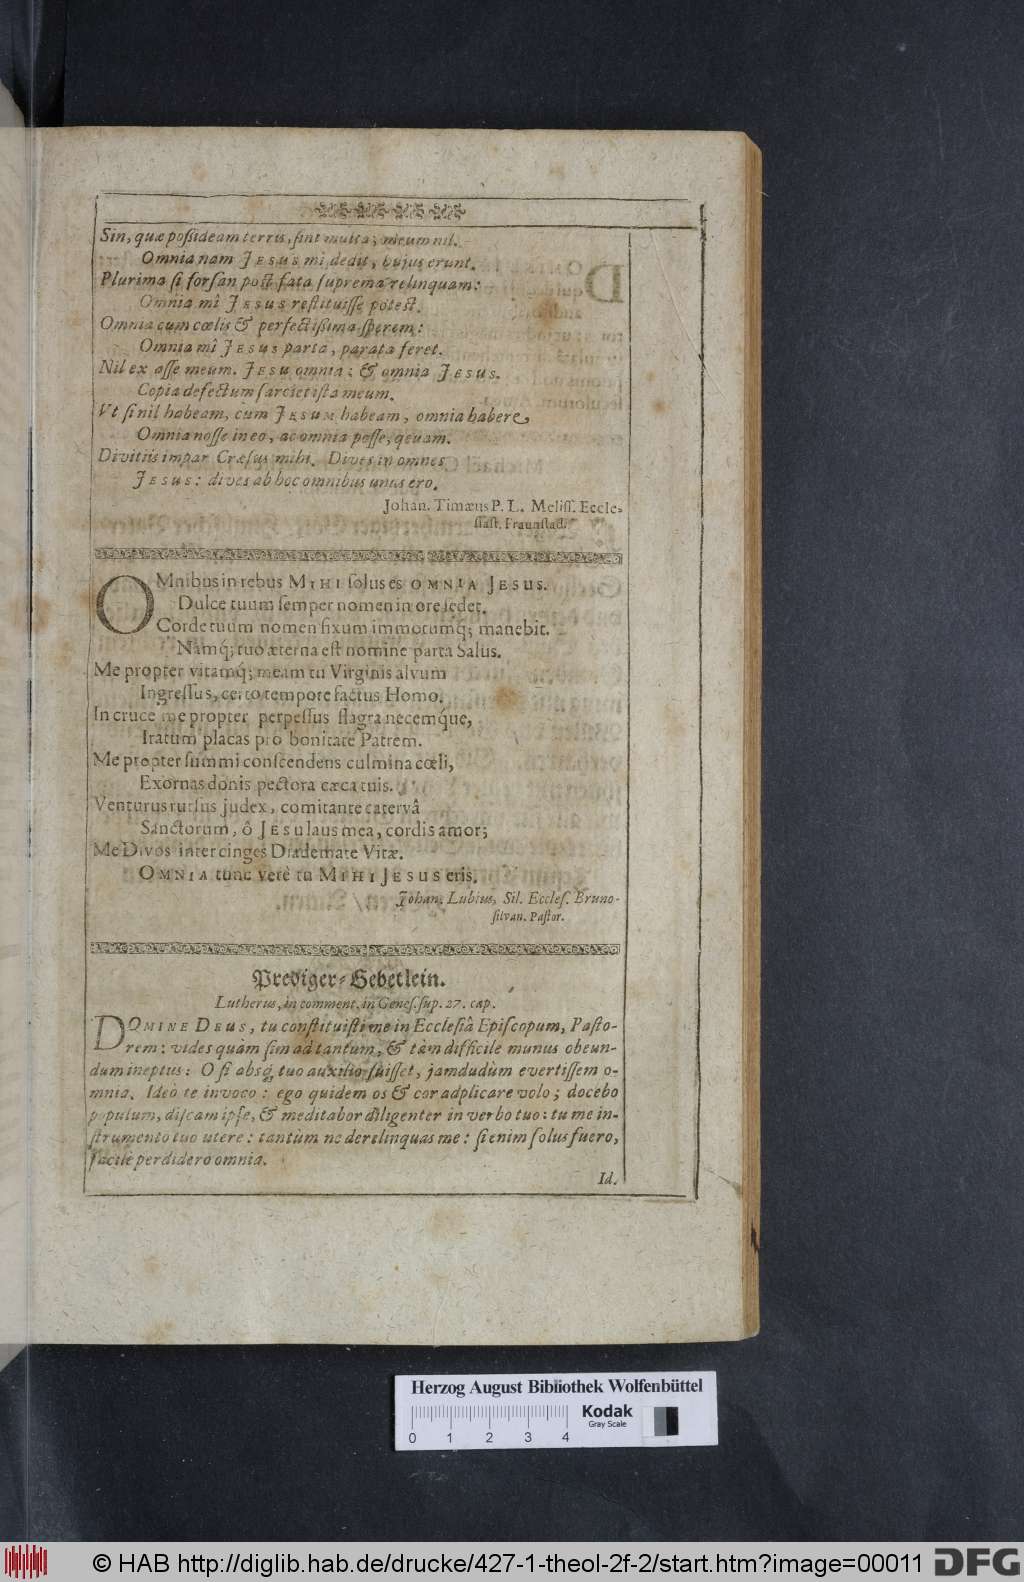 Sin, quæ possideam terris, sint multa; meum nil.
Omnia nam JESUS mi dedit, hujus erunt.
Plurima si forsan post fata suprema relinquam:
Omnia mî JESUS restituisse potest.
Omnia cum cœlis & perfectissima sperem:
Omnia mî JESUS parta, parata feret.
Nil ex asse meum. JESU omnia: & omnia JESUS.
Copia defectum sarciet ista meum.
Vt si nil habeam, cum JESUM habeam, omnia habere
Omnia nosse in eo, ac omnia posse, queam.
Divitiis impar Crœsus mihi. Dives in omnes
JESUS: dives ab hoc omnibus unus ero.
Johan. Timæus P. L. Meliss. Eccle-
siast. Fraunstad.
OMnibus in rebus MIHI solus es OMNIA JESUS.
Dulce tuum semper nomen in ore sedet.
Corde tuum nomen fixum immotumq; manebit.
Namq; tuo æterna est nomine parta Salus.
Me propter vitamq́; meam tu Virginis alvum
Ingressus, certo tempore factus Homo.
In cruce me propter perpessus flagra necemq́ue,
Iratum placas pro bonitate Patrem.
Me propter summi conscendens culmina cœli,
Exornas donis pectora cæca tuis.
Venturus rursus judex, comitante catervâ
Sanctorum, ô JESU laus mea, cordis amor;
Me Divos inter cinges Diademate Vitæ.
OMNIA tunc verè tu MIHI JESUS eris.
Johan. Lubius, Sil. Eccles. Bruno-
silvan. Pastor.
Prediger-Gebetlein.
Lutherus, in comment. in Genes. sup. 27. cap.
DOMINE DEUS, tu constituisti me in Ecclesiâ Episcopum, Pasto-
rem: vides quàm sim ad tantum, & tàm difficile munus obeun-
dum ineptus: O si absq; tuo auxilio fuisset, jamdudùm evertissem o-
mnia. Ideò te invoco: ego quidem os & cor adplicare volo; docebo
populum, discam ipse, & meditabor diligenter in verbo tuo: tu me in-
strumento tuo utere: tantùm ne derelinquas me: si enim solus fuero,
facilè perdidero omnia.
Id.
Herzog August Bibliothek Wolfenbüttel
Kodak
Gray Scale
0 1 2 3 4
© HAB http://diglib.hab.de/drucke/427-1-theol-2f-2/start.htm?image=00011
DFG